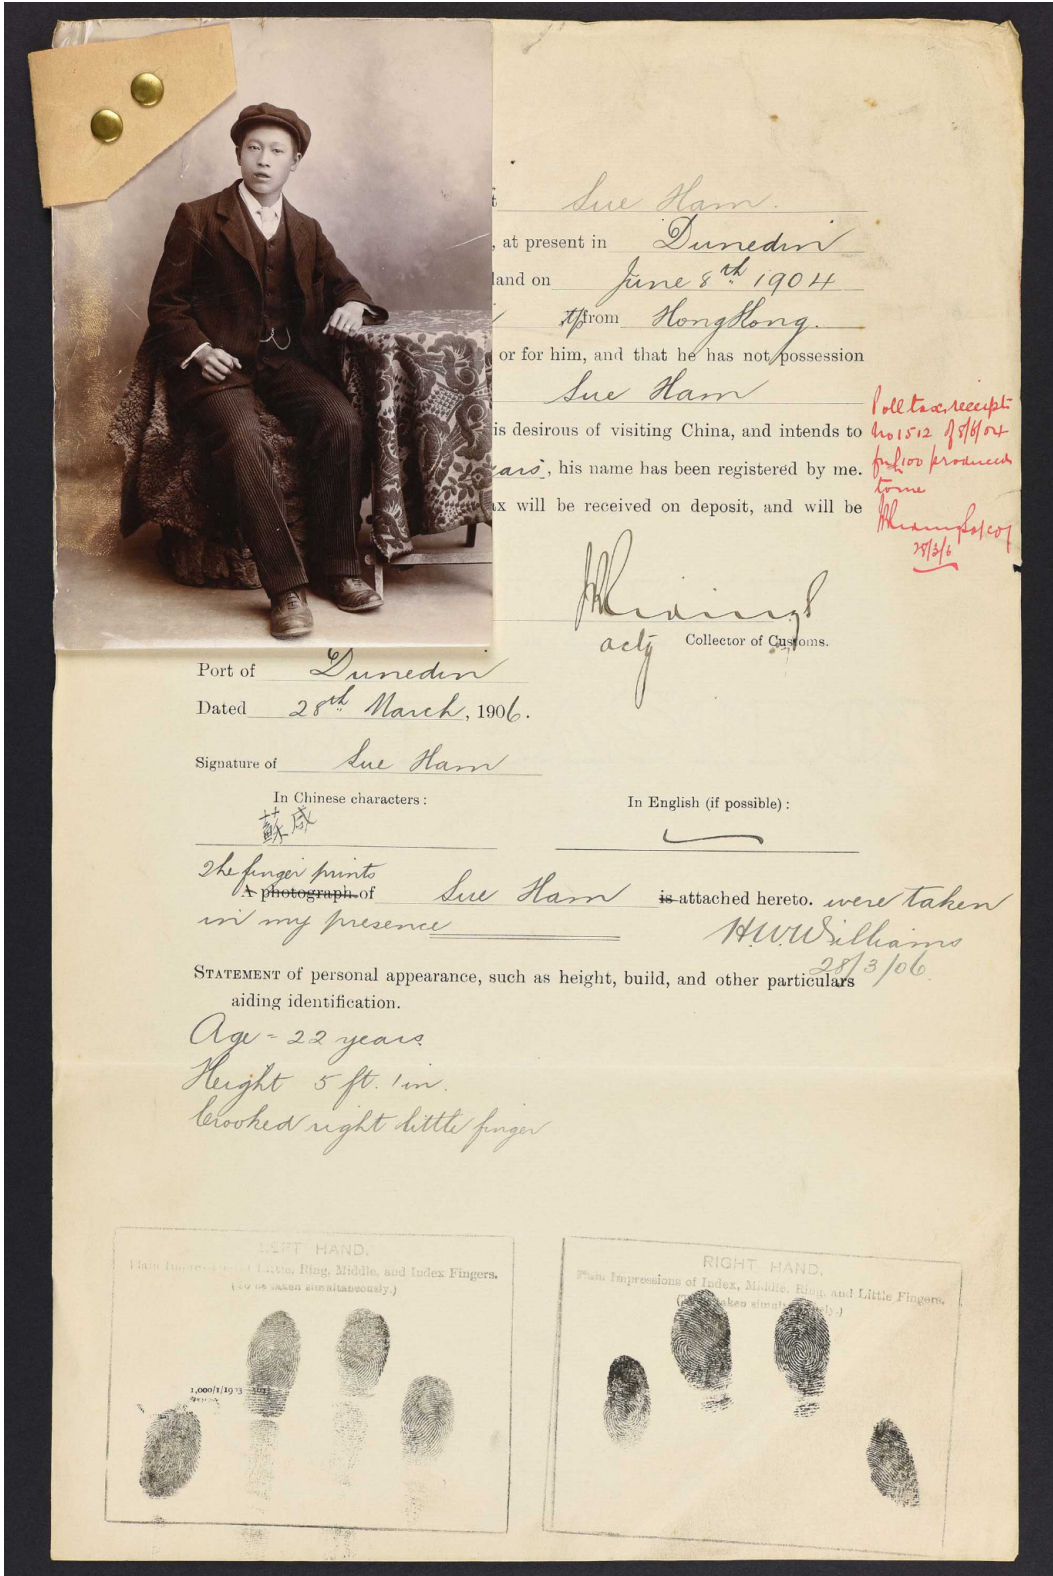 Sue Ham.
, at present in Dunedin
land on June 8th 1904
from HongKong.
or for him, and that he has not possession
Sue Ham
is desirous of visiting China, and intends to
ears, his name has been registered by me.
ax will be received on deposit, and will be
Poll tax receipt
No 1512 of 8/6/04
for £100 produced
to me
28/3/6
actg Collector of Customs.
Port of Dunedin
Dated 28th March, 1906.
Signature of Sue Ham
In Chinese characters:
In English (if possible):
蘇咸
The finger prints
A photograph of Sue Ham is attached hereto. were taken
in my presence
H.W. Williams
28/3/06
STATEMENT of personal appearance, such as height, build, and other particulars
aiding identification.
Age = 22 years
Height 5 ft. 1 in.
Crooked right little finger
LEFT HAND.
Plain Impressions of Little, Ring, Middle, and Index Fingers.
(To be taken simultaneously.)
RIGHT HAND.
Plain Impressions of Index, Middle, Ring, and Little Fingers.
(To be taken simultaneously.)